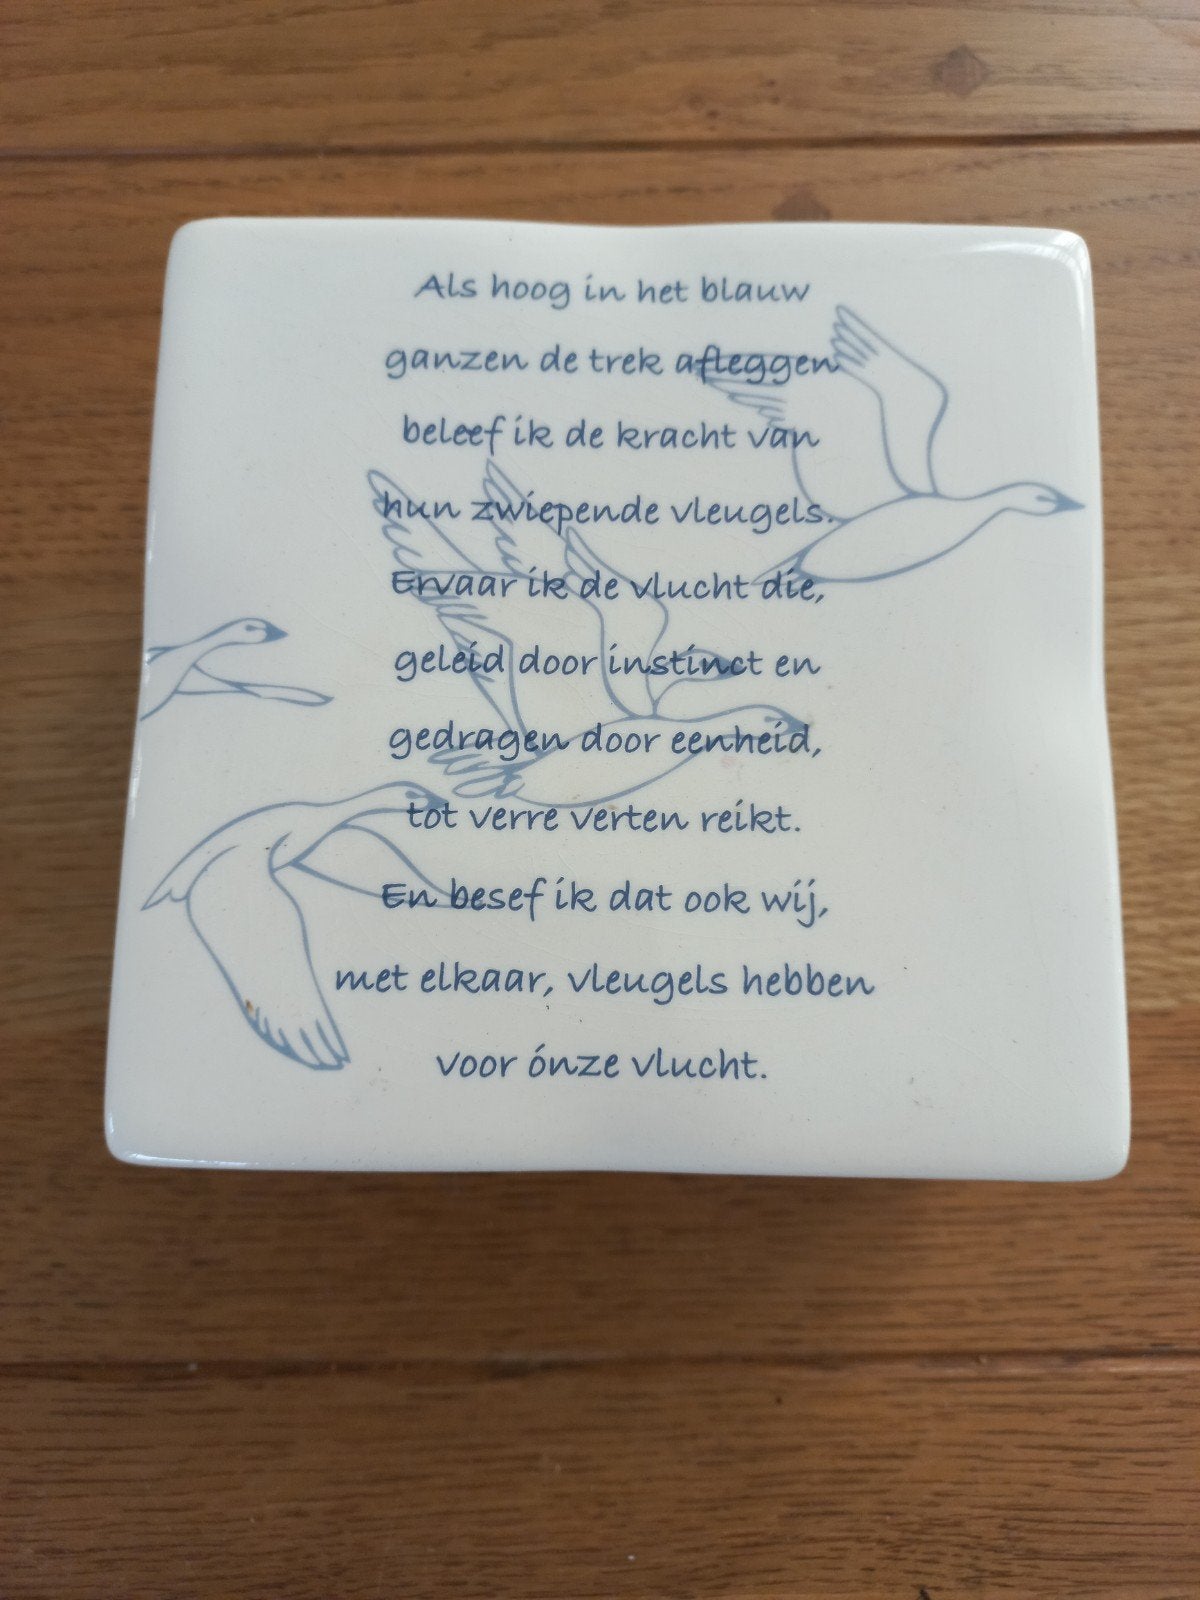 Als hoog in het blauw
ganzen de trek afleggen
beleef ik de kracht van
hun zwiepende vleugels.
Ervaar ik de vlucht die,
geleid door instinct en
gedragen door eenheid,
tot verre verten reikt.
En besef ik dat ook wij,
met elkaar, vleugels hebben
voor ónze vlucht.